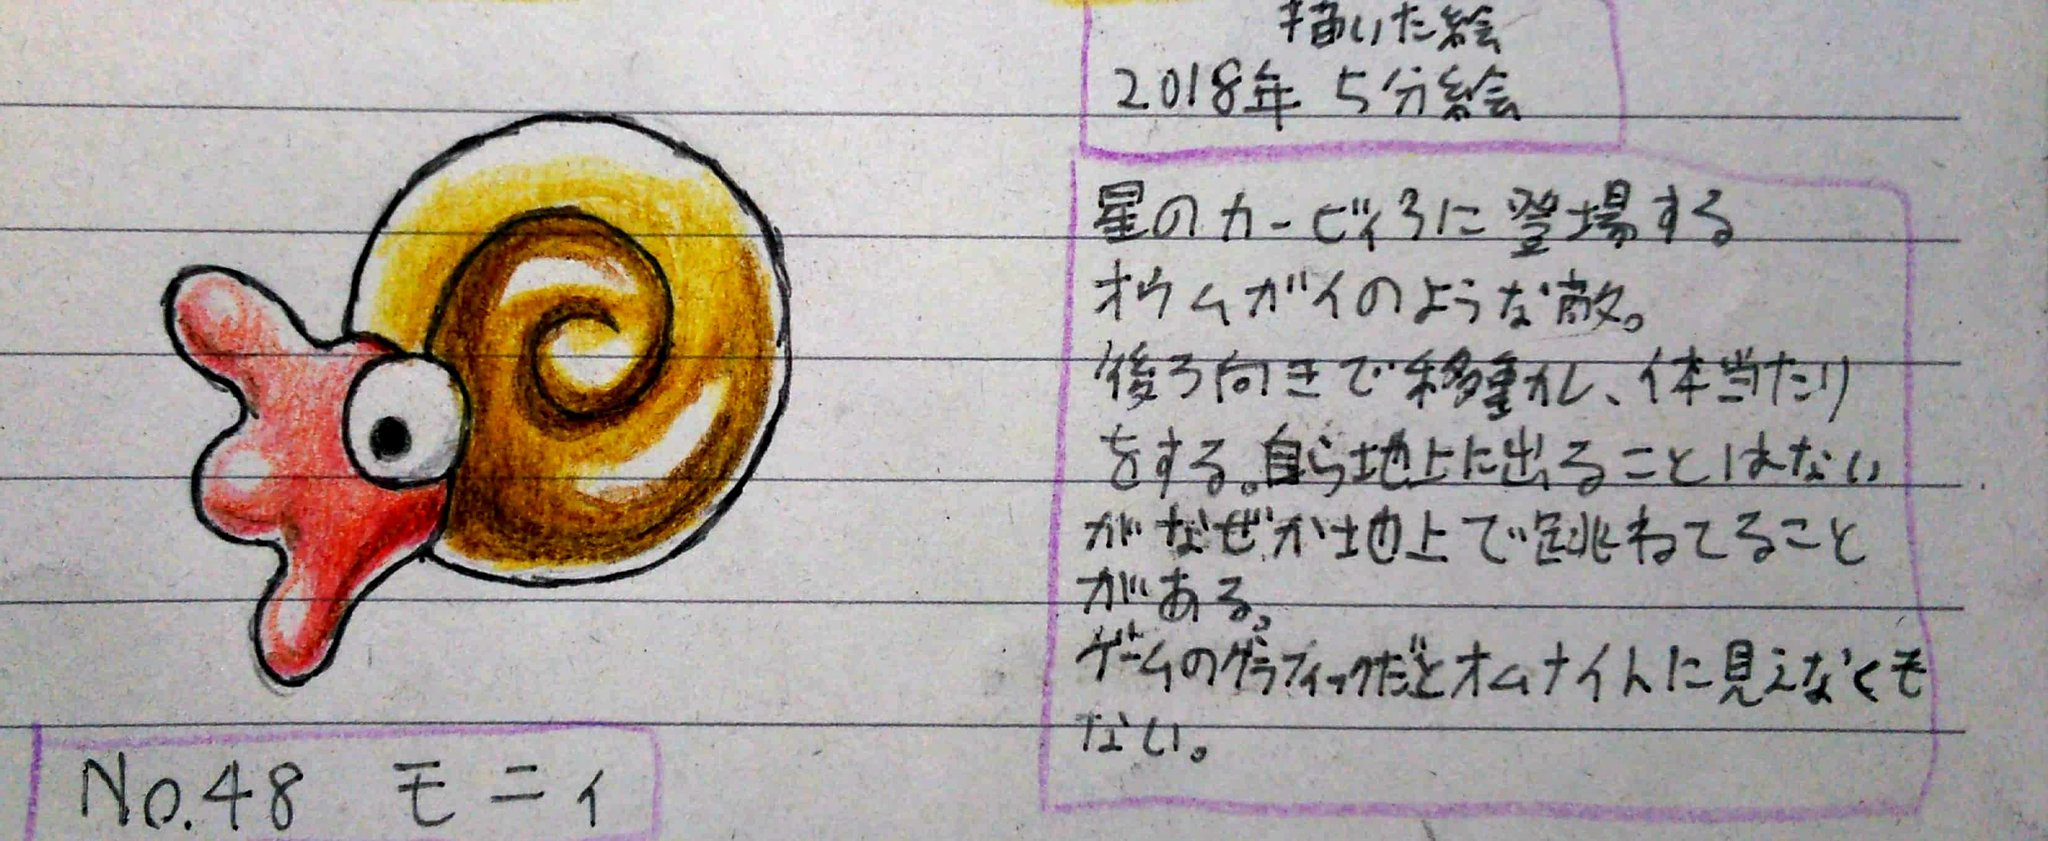 描いた絵
2018年 5分絵
星のカービィ3に登場する
オウムガイのような敵。
後ろ向きで移動し、体当たり
をする。自ら地上に出ることはない
がなぜか地上で跳ねてること
がある。
ゲームのグラフィックだとオムナイトに見えなくも
ない。
No.48 モニィ